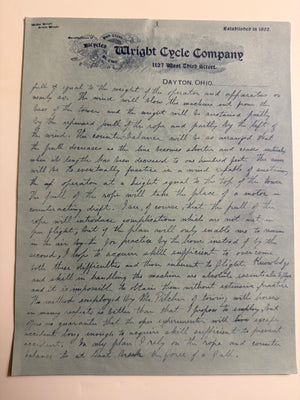 Established in 1892
Bicycles
Wright Cycle Company
1127 West Third Street.
DAYTON, OHIO.
pull of equal to the weight of the operator and apparatus or
nearly so. The wind will blow the machine out from the
base of the tower and the weight will be sustained partly
by the upward pull of the rope and partly by the lift of
the wind. The counterbalance will be so arranged that
the pull decreases as the line becomes shorter and ceases entirely
when its length has been decreased to one hundred feet. The aim
will be to eventually practice in a wind capable of sustaining
the operator at a height equal to the top of the tower.
The pull of the rope will take the place of a motor in
counteracting drift. I see, of course, that the pull of the
rope will introduce complications which are not met in
free flight, but if the plan will only enable me to remain
in the air for practice by the hour instead of by the
second, I hope to acquire skill sufficient to overcome
both these difficulties and those inherent to flight. Knowledge
and skill in handling the machine are absolute essentials to flight
and it is impossible to obtain them without extensive practice.
The method employed by Mr. Pilcher of towing with horses
in many respects is better than that I propose to employ, but
offers no guarantee that the experimenter will escape
accident long enough to acquire skill sufficient to prevent
accident. In my plan I rely on the rope and counter
balance to at least break the force of a fall.